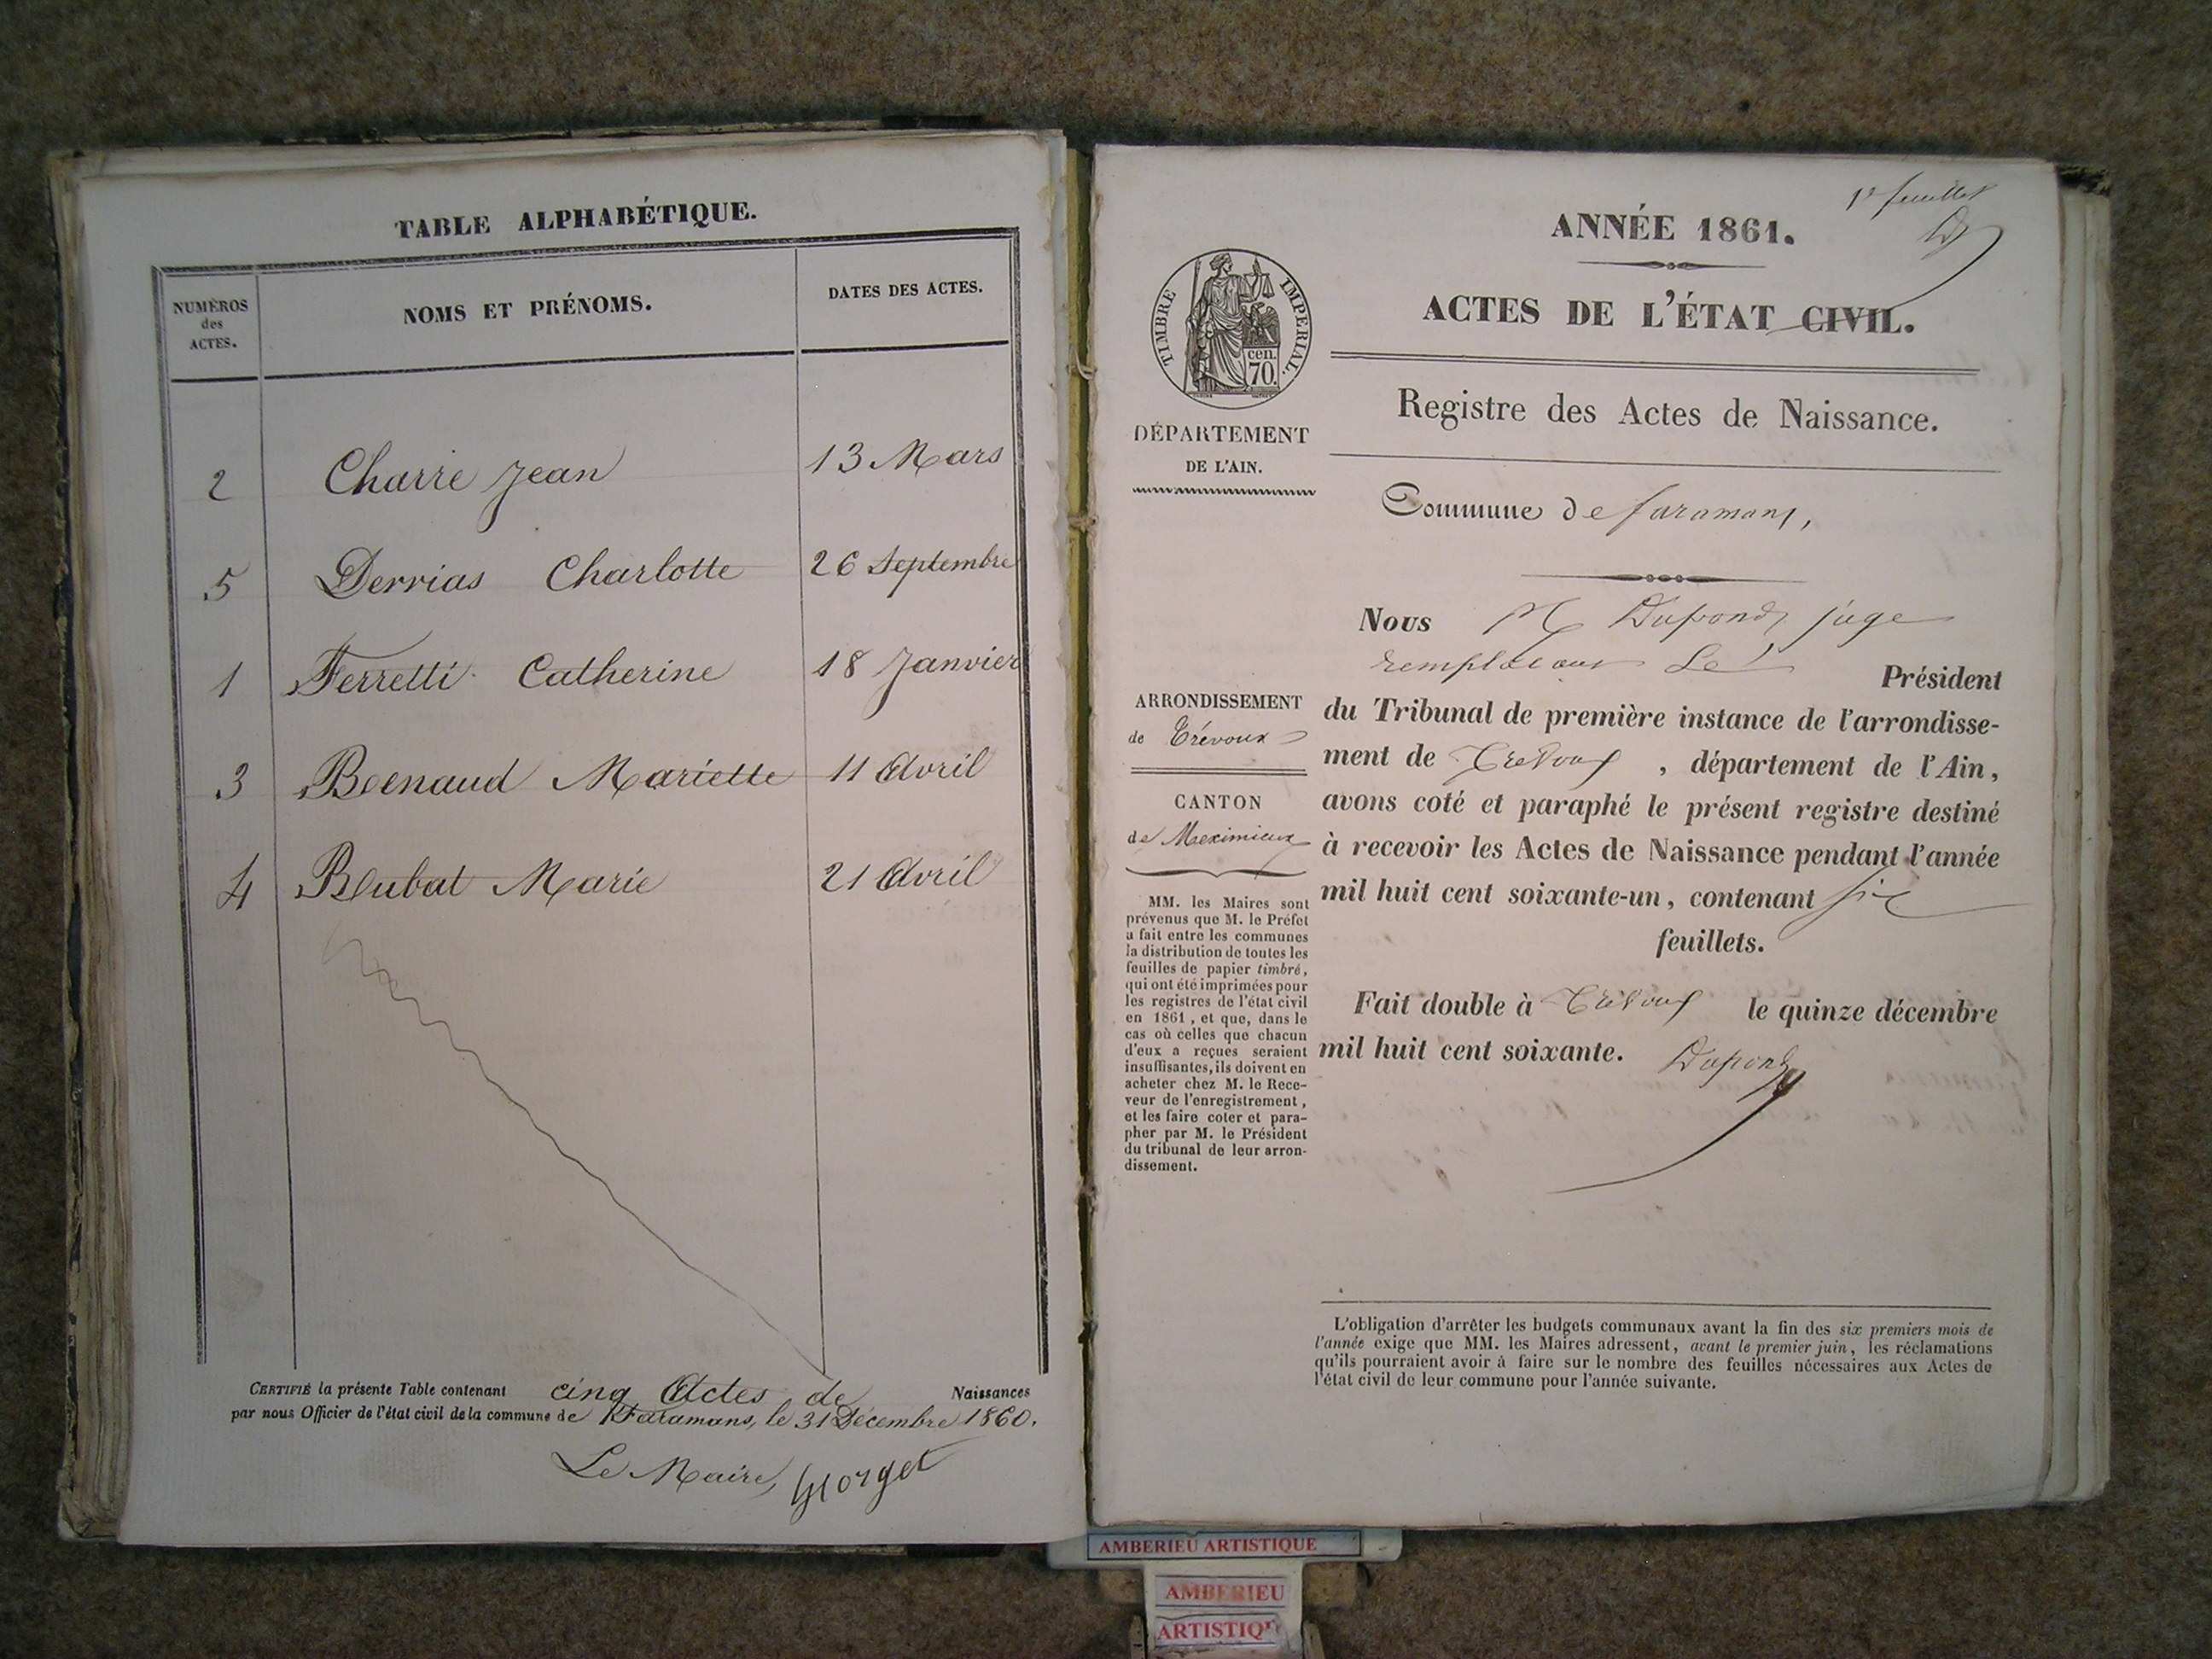 TABLE ALPHABÉTIQUE.
NUMÉROS des ACTES.
NOMS ET PRÉNOMS.
DATES DES ACTES.
2 Charre Jean 13 Mars
5 Dervias Charlotte 26 Septembre
1 Ferretti Catherine 18 Janvier
3 Renaud Mariette 11 Avril
4 Rubat Marie 21 Avril
CERTIFIÉ la présente Table contenant cinq Actes de Naissances
par nous Officier de l'état civil de la commune de Faramans, le 31 Décembre 1860.
Le Maire, Gorget
1er feuillet
ANNÉE 1861.
ACTES DE L'ÉTAT CIVIL.
Registre des Actes de Naissance.
TIMBRE IMPERIAL.
cen.
70.
DÉPARTEMENT
DE L'AIN.
Commune de faramans,
Nous M Dupond, juge
remplaçant Le Président
du Tribunal de première instance de l'arrondisse-
ment de Trévoux, département de l'Ain,
avons coté et paraphé le présent registre destiné
à recevoir les Actes de Naissance pendant l'année
mil huit cent soixante-un, contenant six
feuillets.
Fait double à Trévoux le quinze décembre
mil huit cent soixante. Dupond
ARRONDISSEMENT
de Trévoux
CANTON
de Meximieux
MM. les Maires sont
prévenus que M. le Préfet
a fait entre les communes
la distribution de toutes les
feuilles de papier timbré,
qui ont été imprimées pour
les registres de l'état civil
en 1861, et que, dans le
cas où celles que chacun
d'eux a reçues seraient
insuffisantes, ils doivent en
acheter chez M. le Rece-
veur de l'enregistrement,
et les faire coter et para-
pher par M. le Président
du tribunal de leur arron-
dissement.
L'obligation d'arrêter les budgets communaux avant la fin des six premiers mois de
l'année exige que MM. les Maires adressent, avant le premier juin, les réclamations
qu'ils pourraient avoir à faire sur le nombre des feuilles nécessaires aux Actes de
l'état civil de leur commune pour l'année suivante.
AMBERIEU ARTISTIQUE
AMBERIEU
ARTISTIQUE